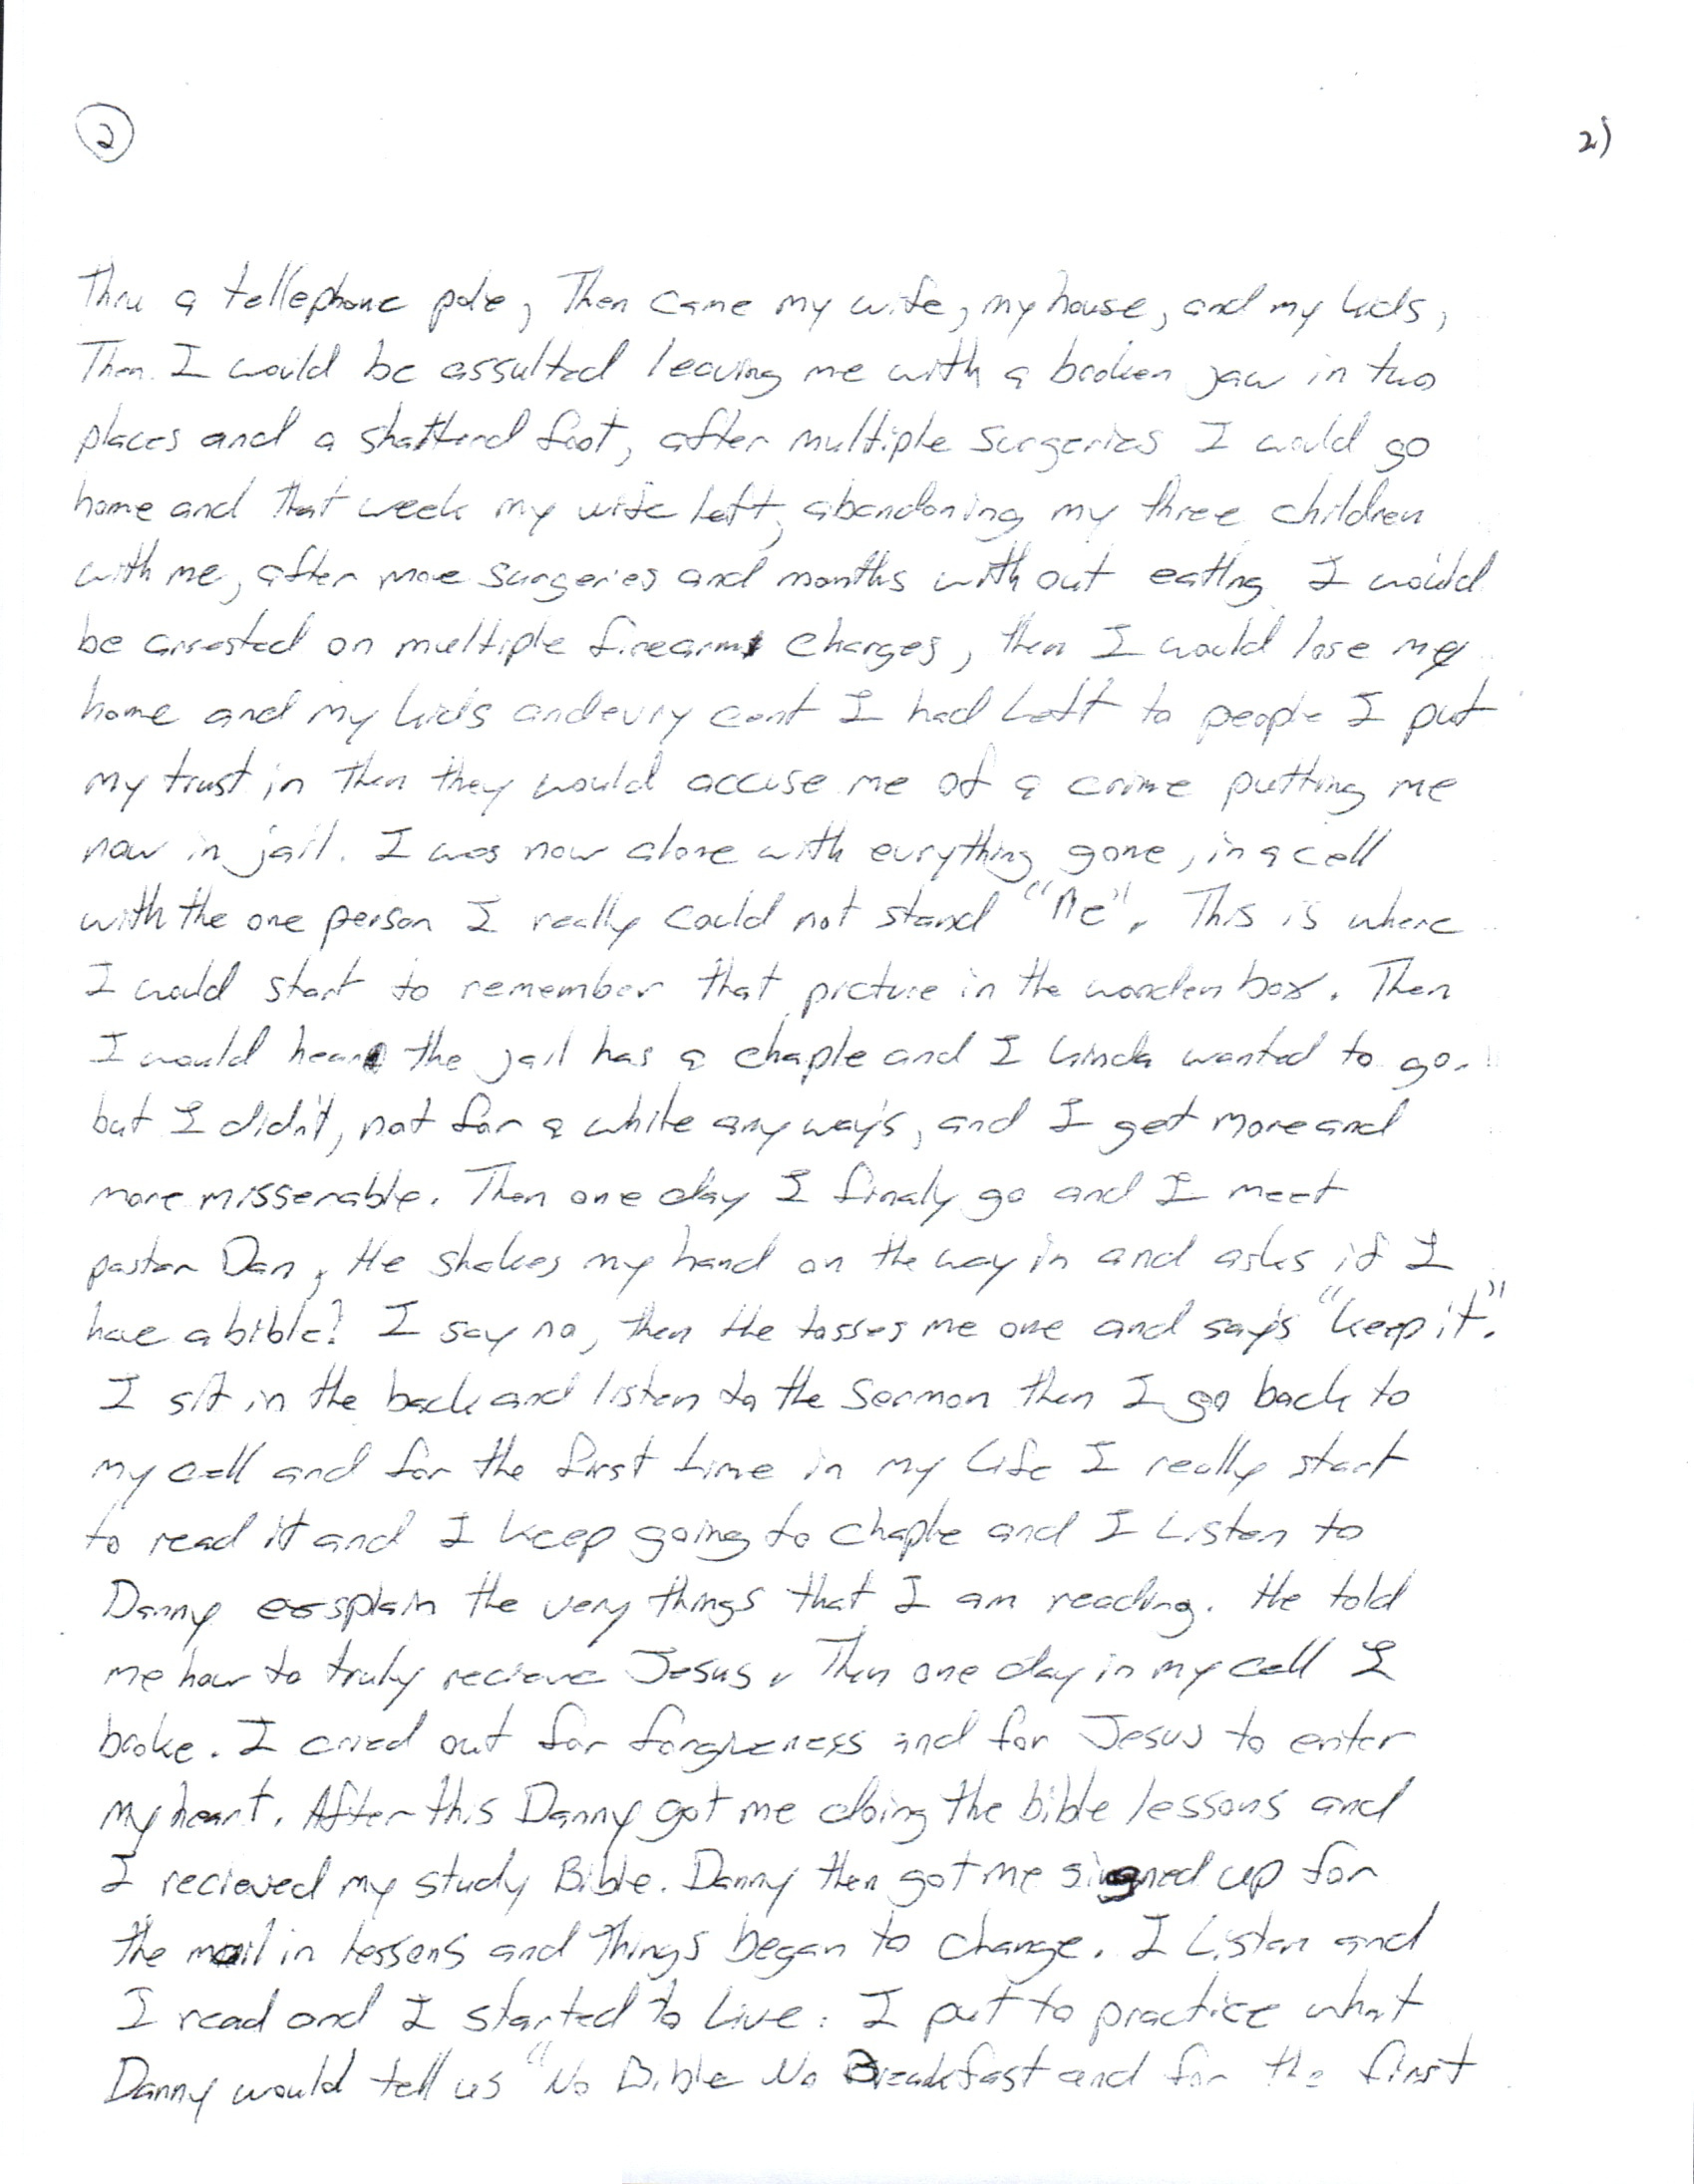 2
2)
Thru a tellephone pole, Then came my wife, my house, and my kids,
Then I would be assulted leaving me with a broken jaw in two
places and a shatterd foot, after multiple surgeries I would go
home and that week my wife left, abandoning my three children
with me, after more surgeries and months with out eating I would
be arrested on multiple firearms charges, then I would lose my
home and my kids and evry cent I had Left to people I put
my trust in Then they would accuse me of a crime putting me
now in jail. I was now alone with evrything gone, in a cell
with the one person I really could not stand "Me". This is where
I would start to remember that picture in the wooden box. Then
I would hear the jail has a chaple and I kinda wanted to go.
but I didn't, not for a while any way's, and I get more and
more misserable. Then one day I finaly go and I meet
pastor Dan, He shakes my hand on the way in and asks if I
have a bible? I say no, then He tosses me one and say's "keep it".
I sit in the back and listen to the Sermon then I go back to
my cell and for the first time in my life I really start
to read it and I keep going to chaple and I Listen to
Danny exsplain the very things that I am reading. He told
me how to truly recieve Jesus, Then one day in my cell I
broke. I cried out for forgiveness and for Jesus to enter
my heart. After this Danny got me doing the bible lessons and
I recieved my study Bible. Danny then got me signed up for
the mail in lessens and things began to change. I Listen and
I read and I started to Live. I put to practice what
Danny would tell us "No Bible No Breakfast and for the first